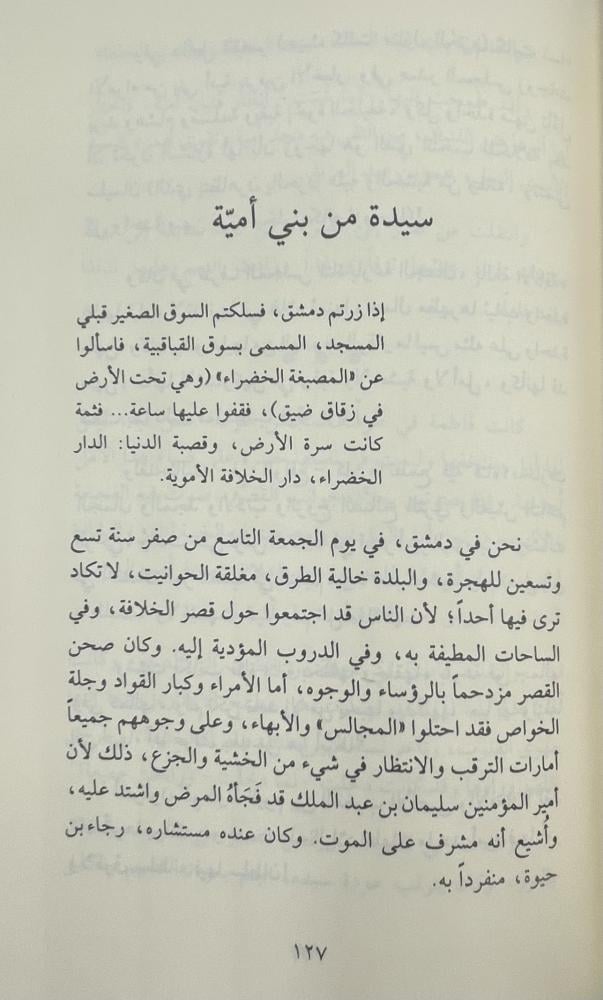 سيدة من بني أميّة
إذا زرتم دمشق، فسلكتم السوق الصغير قبلي
المسجد، المسمى بسوق القباقبية، فاسألوا
عن «المصبغة الخضراء» (وهي تحت الأرض
في زقاق ضيق)، فقفوا عليها ساعة... فثمة
كانت سرة الأرض، وقصبة الدنيا: الدار
الخضراء، دار الخلافة الأموية.
نحن في دمشق، في يوم الجمعة التاسع من صفر سنة تسع
وتسعين للهجرة، والبلدة خالية الطرق، مغلقة الحوانيت، لا تكاد
ترى فيها أحداً؛ لأن الناس قد اجتمعوا حول قصر الخلافة، وفي
الساحات المطيفة به، وفي الدروب المؤدية إليه. وكان صحن
القصر مزدحماً بالرؤساء والوجوه، أما الأمراء وكبار القواد وجلة
الخواص فقد احتلوا «المجالس» والأبهاء، وعلى وجوههم جميعاً
أمارات الترقب والانتظار في شيء من الخشية والجزع، ذلك لأن
أمير المؤمنين سليمان بن عبد الملك قد فَجَأهُ المرض واشتد عليه،
وأُشيع أنه مشرف على الموت. وكان عنده مستشاره، رجاء بن
حيوة، منفرداً به.
١٢٧